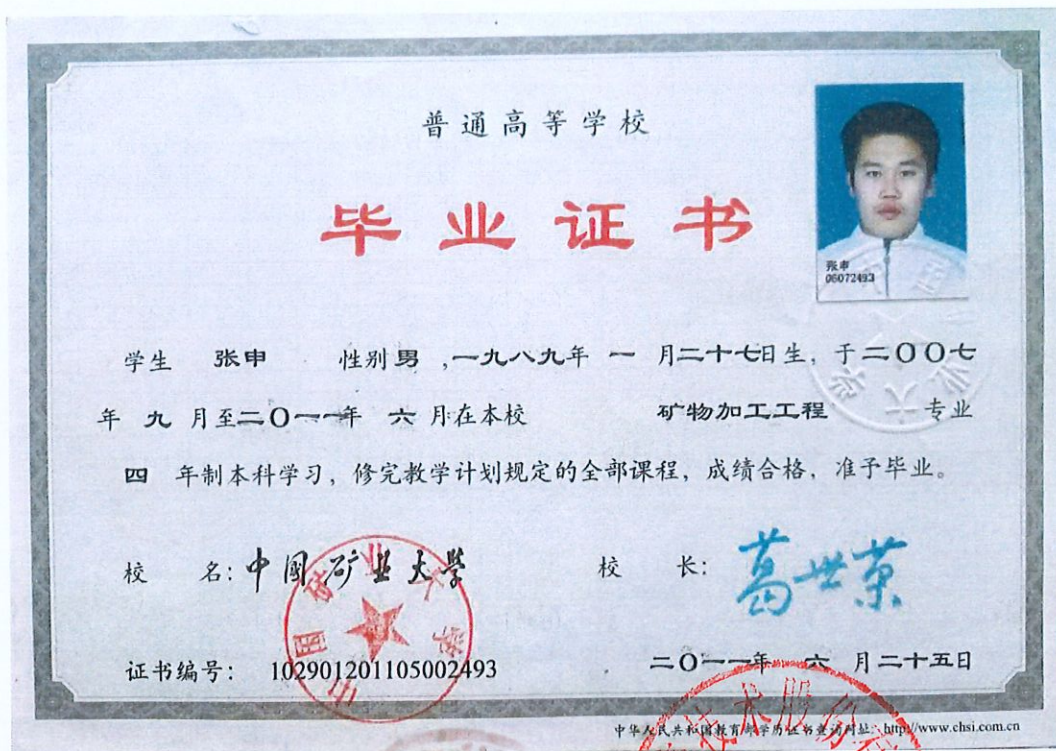 普通高等学校
毕业证书
张申
06072493
学生 张申 性别男,一九八九年 一 月二十七日生,于二〇〇七
年 九 月至二〇一一年 六 月在本校 矿物加工工程 专业
四 年制本科学习,修完教学计划规定的全部课程,成绩合格,准予毕业。
校 名:中国矿业大学 校 长:葛世荣
中国矿业大学
证书编号: 102901201105002493 二〇一一年 六 月二十五日
中华人民共和国教育部学历证书查询网址: http://www.chsi.com.cn
技术股份